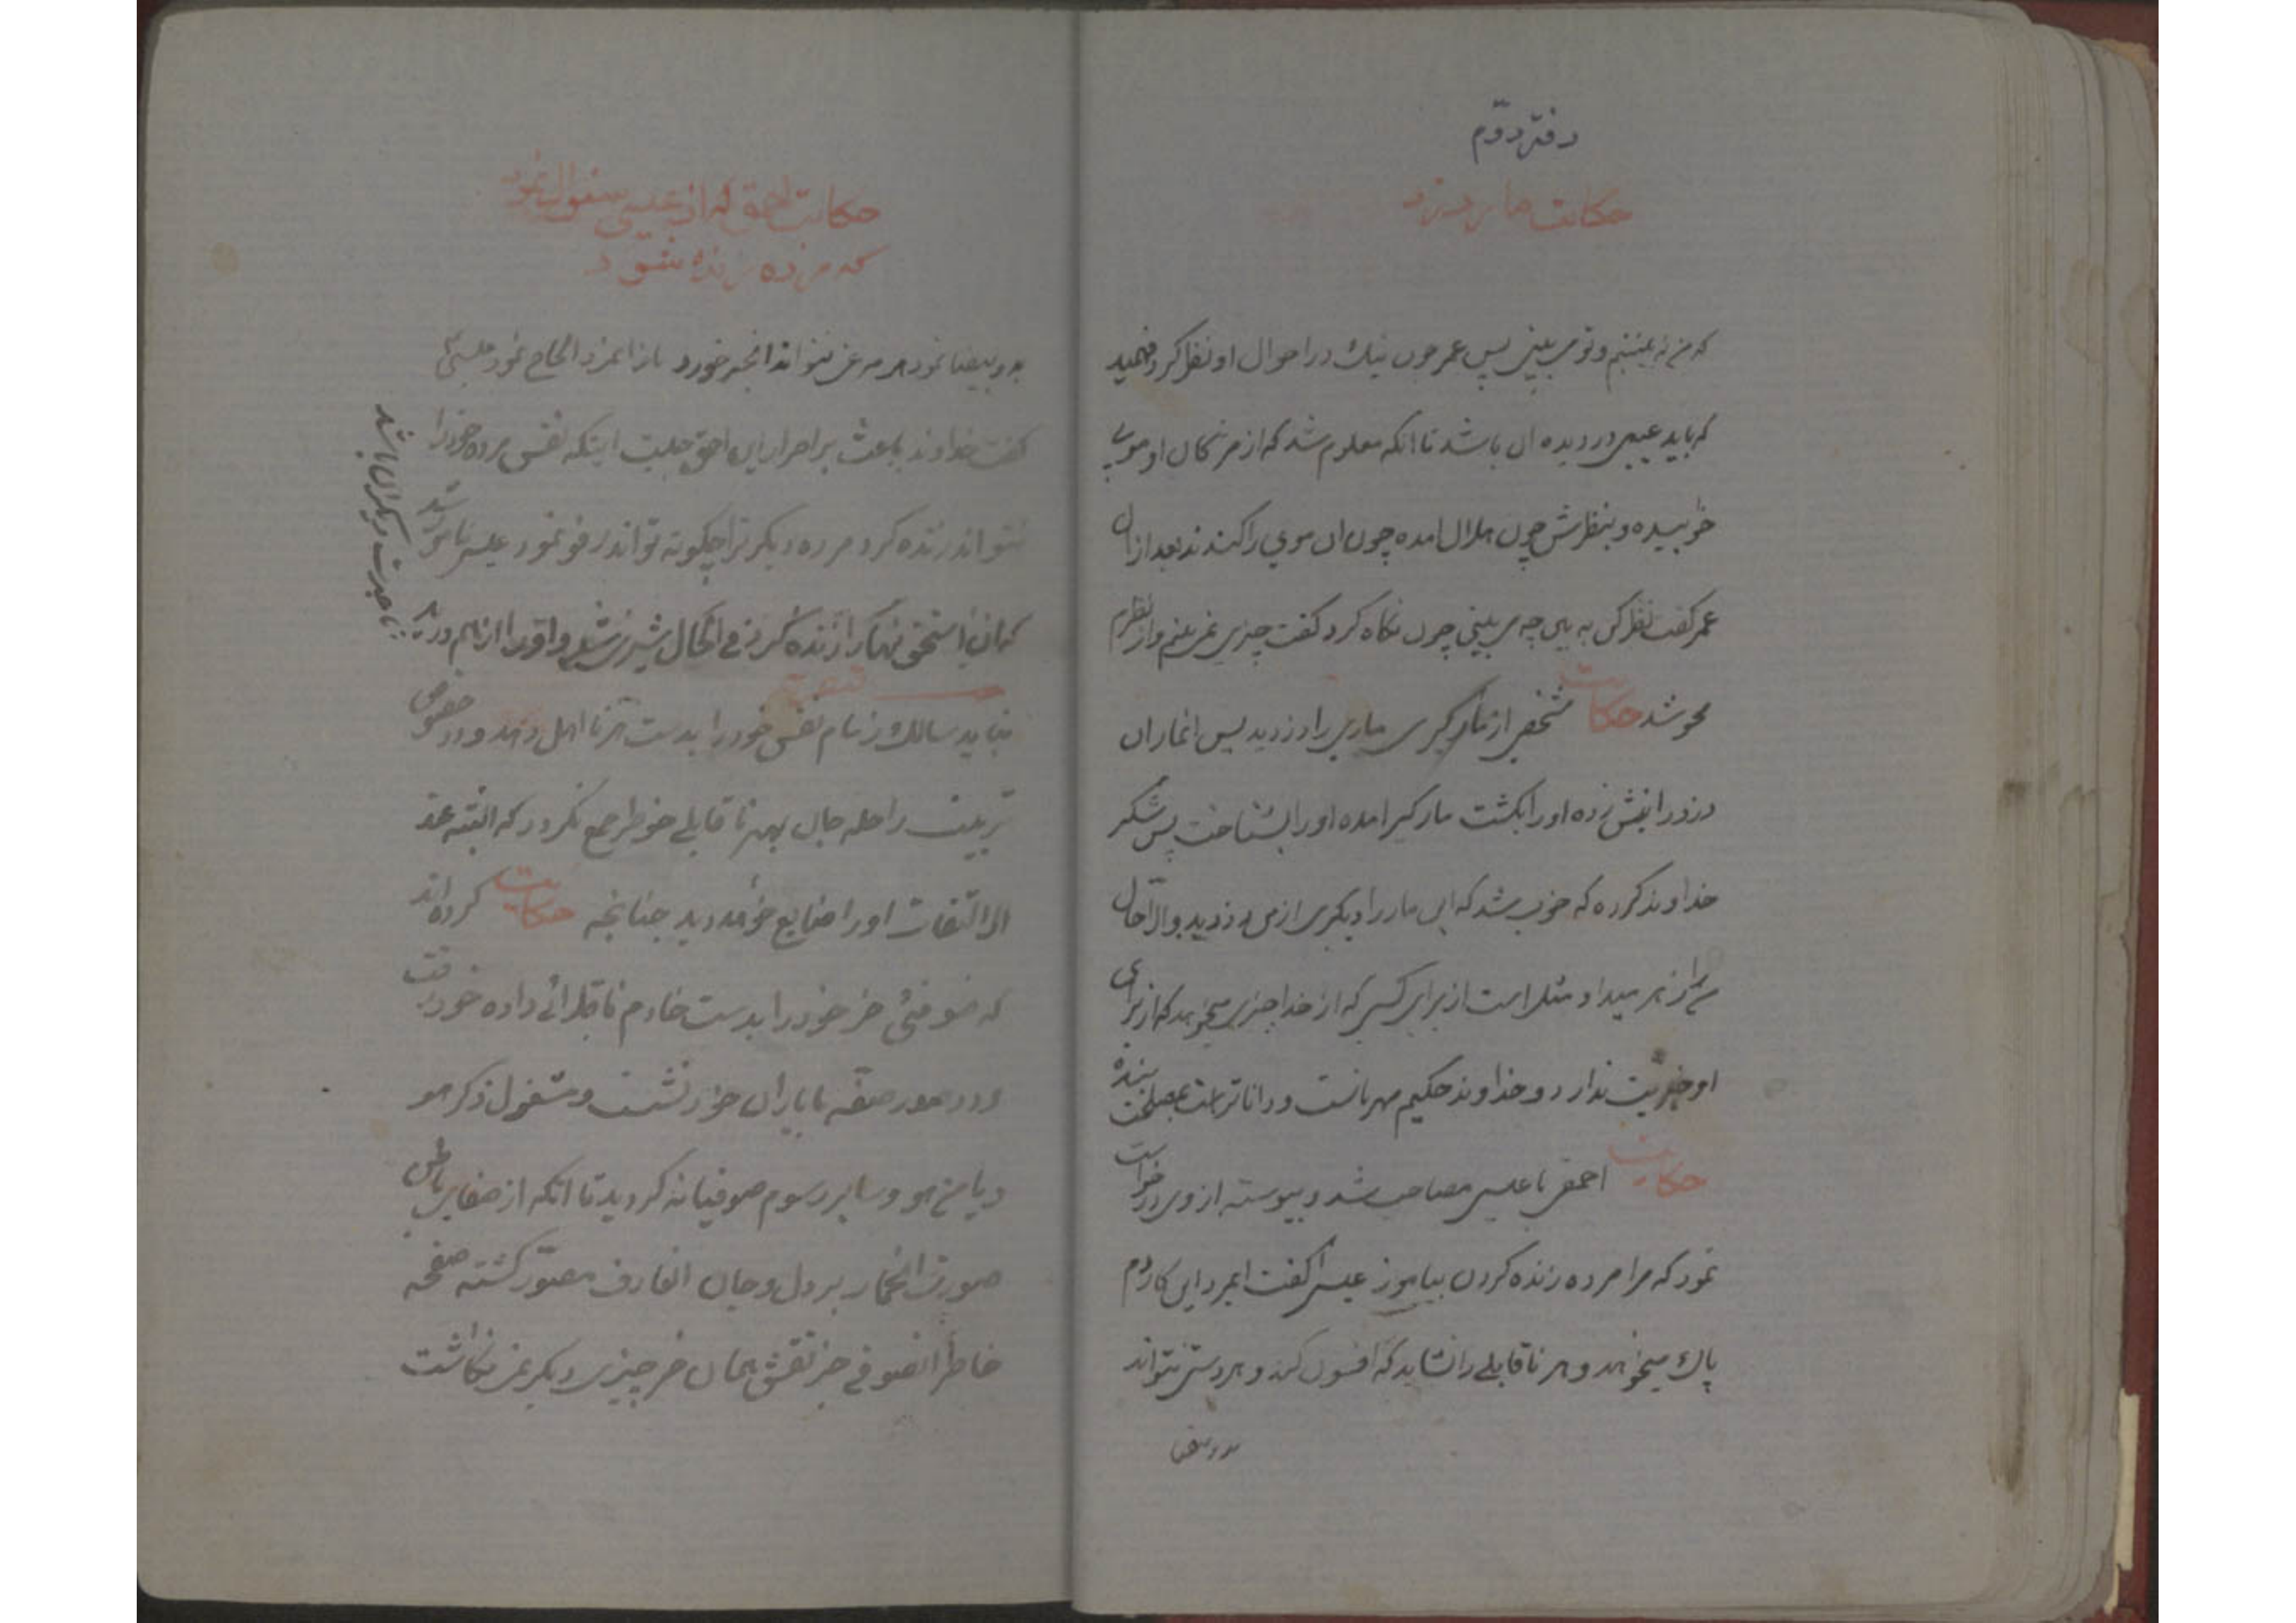 دفتر دوّم
حکایت مار دزد
که من نه بینم و تو می بینی پس عمر چون نیک در احوال او نظر کرد فهمید
که باید عیبی در دیده ان باشد تا انکه معلوم شد که از مژکان او مویی
خوبیده و بنظرش چون هلال امده چون ان موی را کندند بعد از ان
عمر کفت نظر کن به بین چه می بینی چون نکاه کرد کفت چیزی نمی بینم و از نظرم
محو شد حکایت شخصی از مارکیری ماری را دزدید پس انماران
دزد را نیش زده او را بکشت مارکیر امده او را بشناخت پس شکر
خداوند کرده که خوب شد که این مار را دیکری از من دزدید والا حال
مرا زهر میداد مثل است از برای کسی که از خدا چیزی میخواهد که از برای
او خوبیت ندارد و خداوند حکیم مهربانست و داناتر است بمصلحت بنده
حکایت احمقی با عیسی مصاحب شد و پیوسته از وی درخواست
نمود که مرا مرده زنده کردن بیاموز عیسی کفت ایمرد این کار دم
پاک میخواهد و هر ناقابلی را نشاید که افسون کند و هر دستی نتواند
ید بیضا
حکایت احمق که از عیسی سئوال نمود
که مرده زنده شود
ید و بیضا نمود هر مرغی نتواند انجیر خورد باز انمرد الحاح نمود عیسی
کفت خداوندا باعث بر اصرار این احمق چیست اینکه نفس مرده خود را
نتواند زنده کرد مرده دیکر را چکونه تواند
همان استخوانها را زنده کرد فی الحال شیری شد و او را از هم درید
تا عبرت دیکران باشد
نباید سالک زمام نفس خود را بدست هر نا اهل دهد و در خصوص
تربیت راحله جان بهر ناقابلی خاطر جمع نکردد که البته عند
الالتفات او را ضایع خواهد دید چنانچه حکایت کرده اند
که صوفئی خر خود را بدست خادم داده خود رفت
و در صفه با یاران خود نشست و مشغول ذکر هو
و یا من هو و سایر رسوم صوفیانه کردید تا انکه از صفای باطن
صورت انحمار بر دل و جان العارف مصوّر کشته صفحه
خاطر انصوفی جز نقش همان خر چیزی دیکر نمی نکاشت